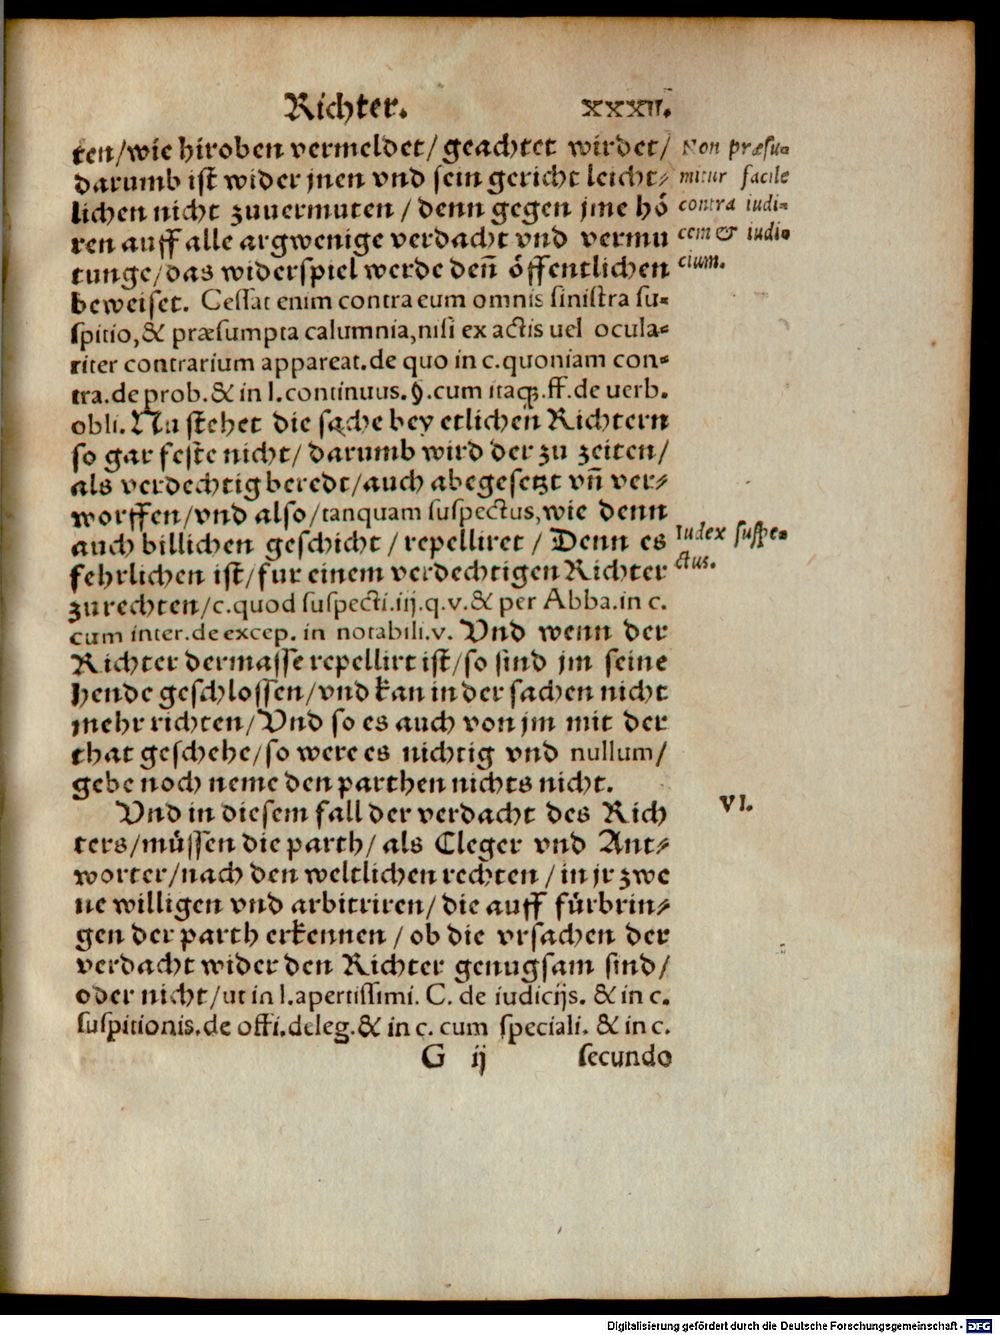 Richter. XXXII.
ten/wie hiroben vermeldet/geachtet wirdet/
darumb ist wider jnen vnd sein gericht leicht⸗
lichen nicht zuuermuten/denn gegen jme hö
ren auff alle argwenige verdacht vnd vermu
tunge/das widerspiel werde deñ öffentlichen
beweiset. Cessat enim contra eum omnis sinistra su⸗
spitio,& præsumpta calumnia,nisi ex actis uel ocula⸗
riter contrarium appareat.de quo in c.quoniam con⸗
tra.de prob.& in l.continuus.§.cum itaq;.ff.de uerb.
obli. Nu stehet die sache bey etlichen Richtern
so gar feste nicht/darumb wird der zu zeiten/
als verdechtig beredt/auch abegesetzt vñ ver⸗
worffen/vnd also/tanquam suspectus,wie denn
auch billichen geschicht/repelliret/Denn es
fehrlichen ist/fur einem verdechtigen Richter
zurechten/c.quod suspecti.iij.q.v.& per Abba.in c.
cum inter.de excep. in notabili.v. Vnd wenn der
Richter dermasse repellirt ist/so sind jm seine
hende geschlossen/vnd kan in der sachen nicht
mehr richten/Vnd so es auch von jm mit der
that geschehe/so were es nichtig vnd nullum/
gebe noch neme den parthen nichts nicht.
Vnd in diesem fall der verdacht des Rich
ters/müssen die parth/als Cleger vnd Ant⸗
worter/nach den weltlichen rechten/in jr zwe
ne willigen vnd arbitriren/die auff fürbrin⸗
gen der parth erkennen/ob die vrsachen der
verdacht wider den Richter genugsam sind/
oder nicht/ut in l.apertissimi. C. de iudicijs. & in c.
suspitionis.de offi.deleg.& in c. cum speciali. & in c.
G ij secundo
Non præsu⸗
mitur facile
contra iudi⸗
cem & iudi⸗
cium.
Iudex suspe⸗
ctus.
VI.
Digitalisierung gefördert durch die Deutsche Forschungsgemeinschaft - DFG